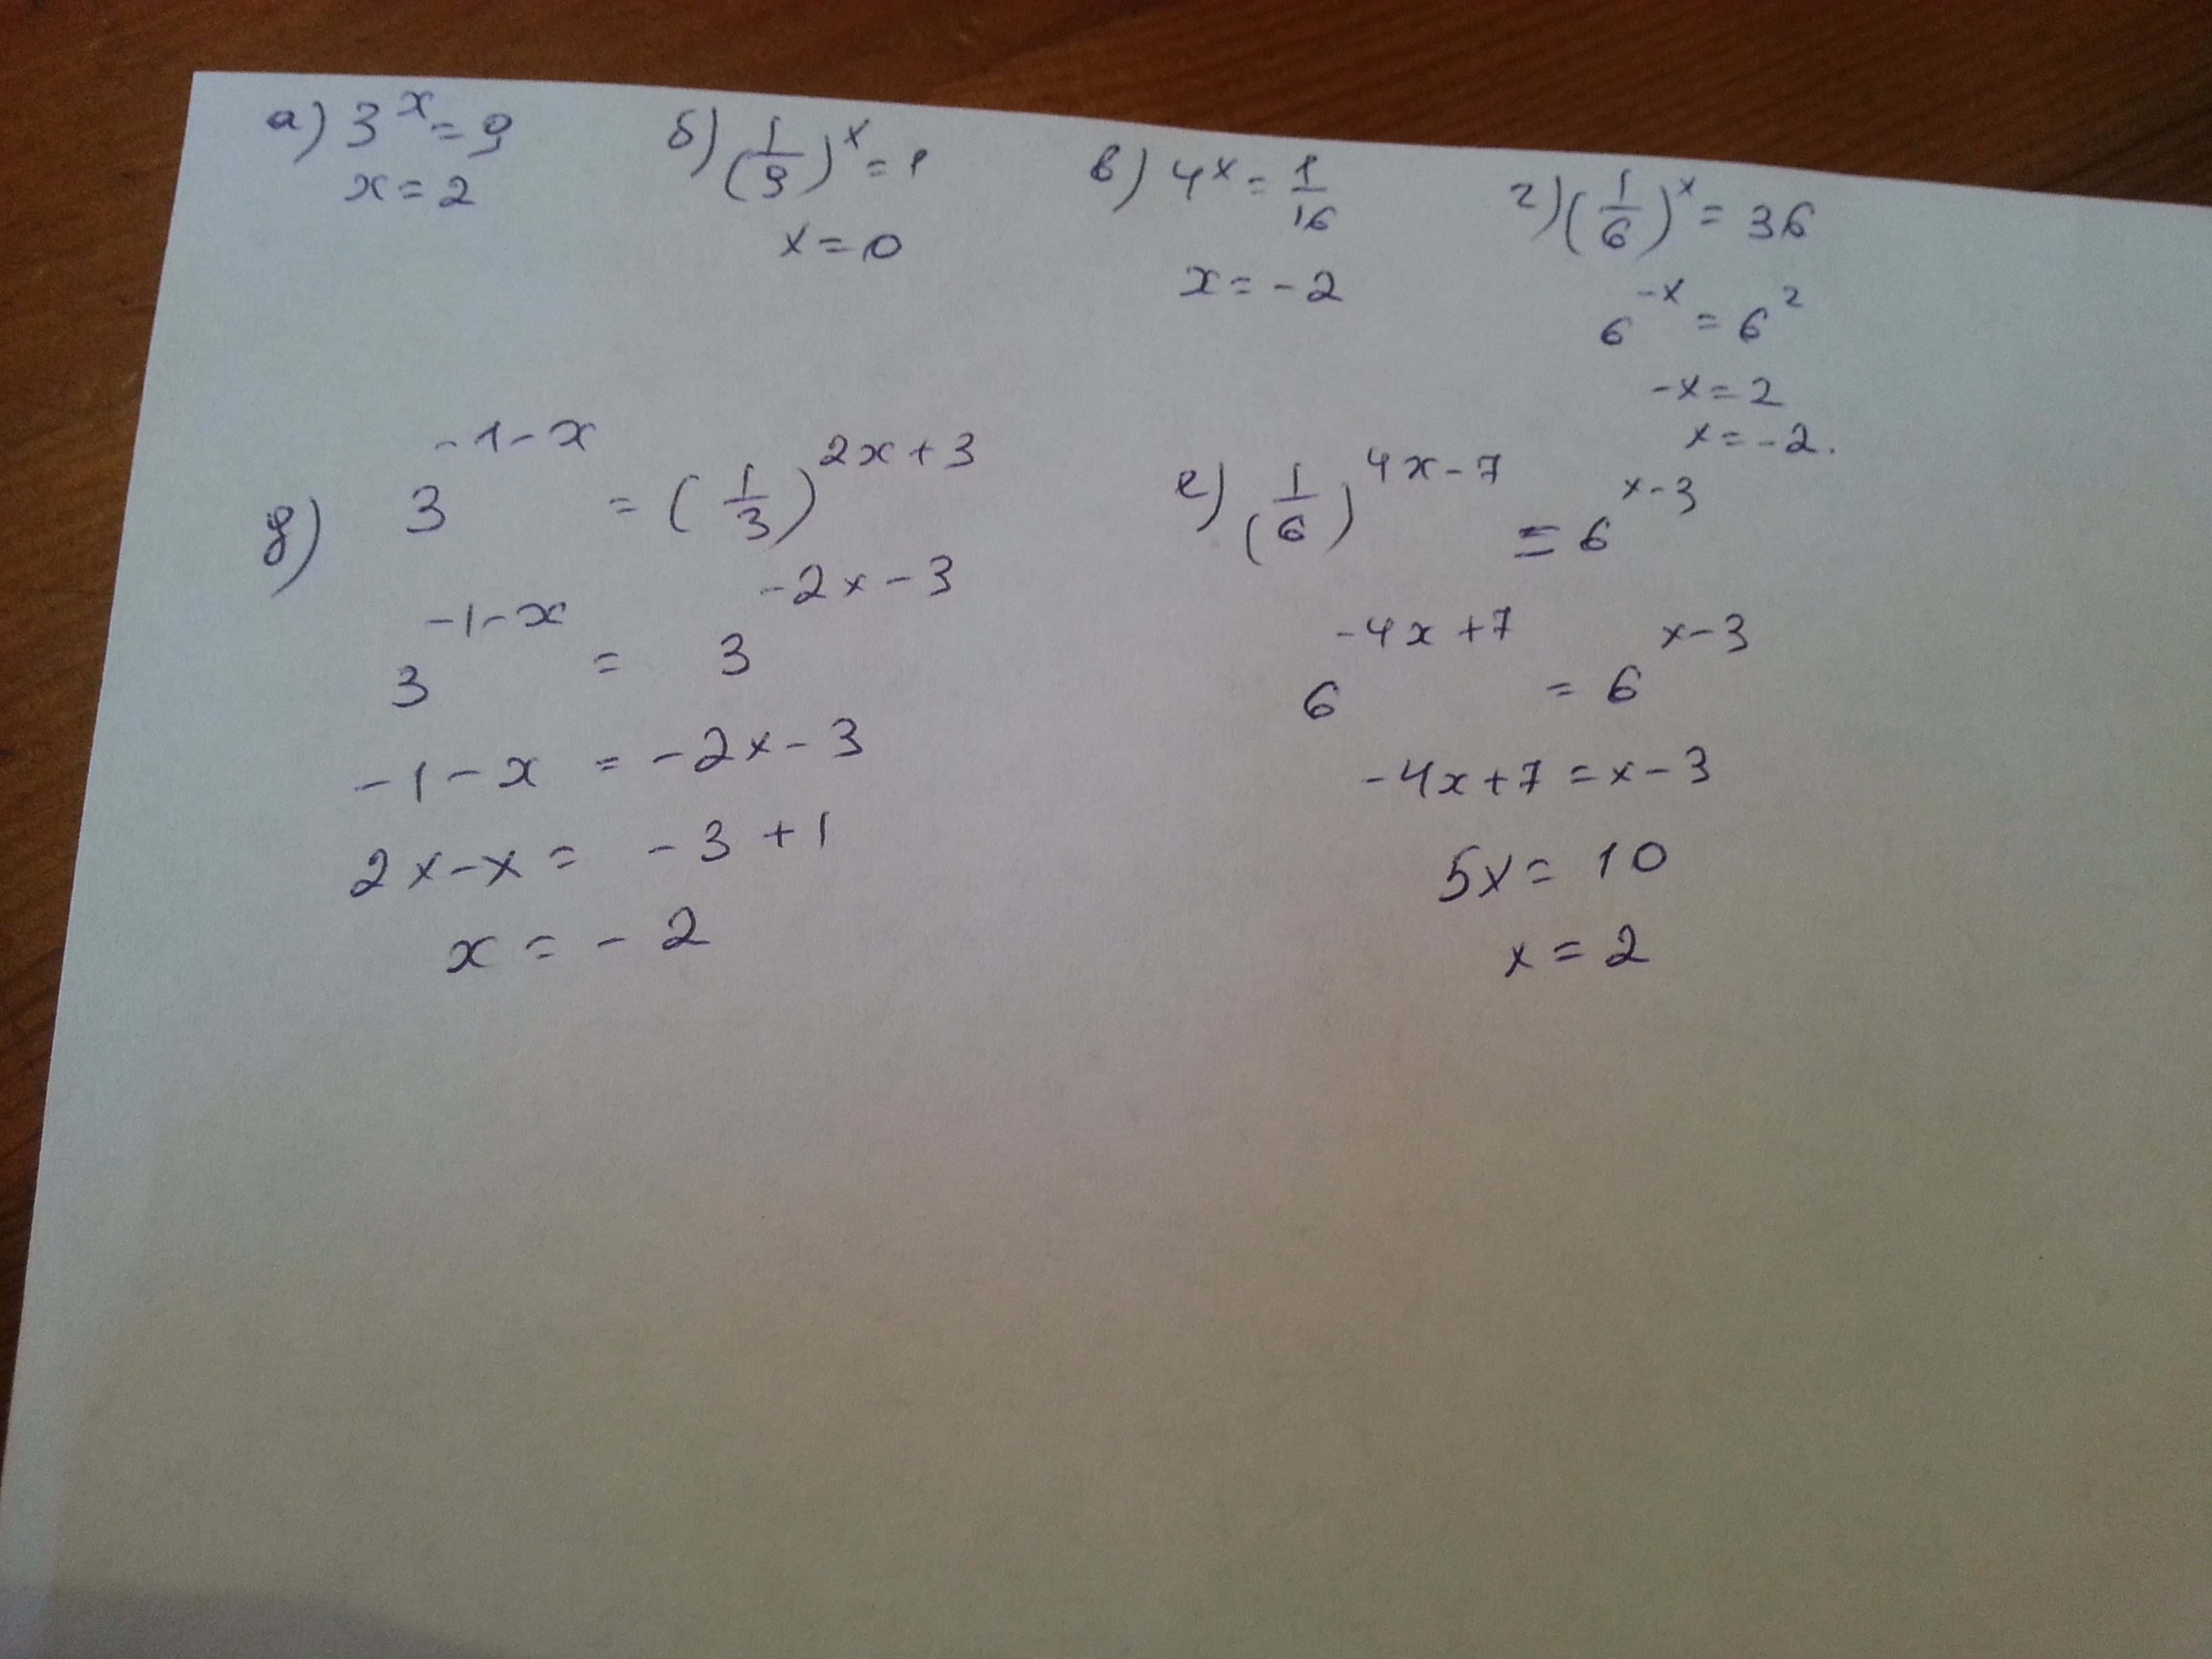 а) 3^x = 9
x = 2
б) (1/9)^x = 1
x = 0
в) 4^x = 1/16
x = -2
г) (1/6)^x = 36
6^{-x} = 6^2
-x = 2
x = -2.
д) 3^{-1-x} = (1/3)^{2x+3}
3^{-1-x} = 3^{-2x-3}
-1-x = -2x-3
2x-x = -3+1
x = -2
е) (1/6)^{4x-7} = 6^{x-3}
6^{-4x+7} = 6^{x-3}
-4x+7 = x-3
5x = 10
x = 2